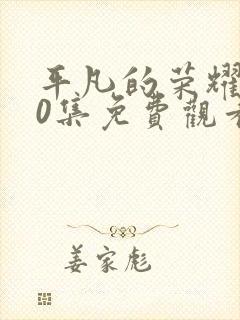 平凡的荣耀
0集免費觀看
姜家彪